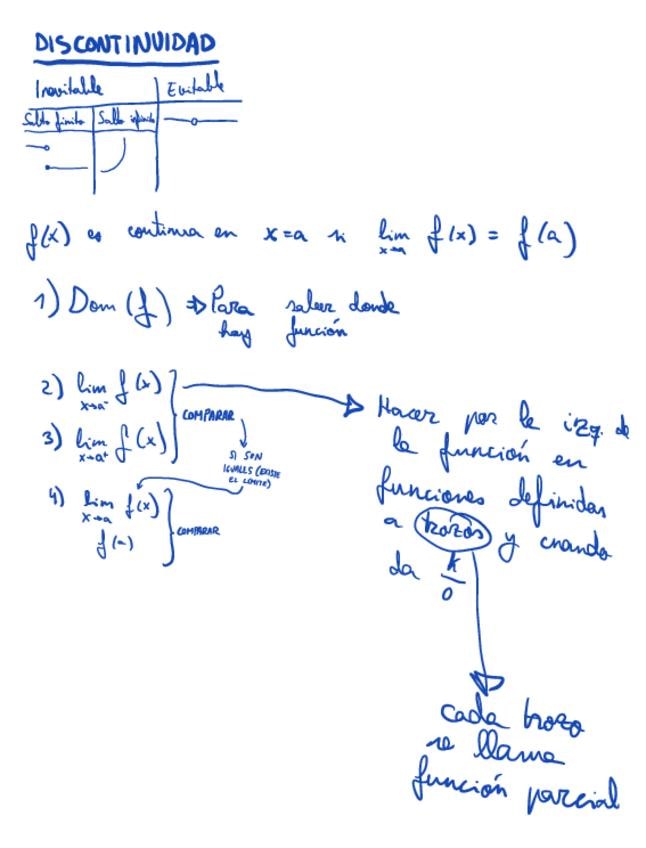 DISCONTINUIDAD
Inevitable | Evitable
Salto finito | Salto infinito
f(x) es continua en x=a si lim f(x) = f(a)
x→a
1) Dom (f) ⇒ Para saber donde
hay función
2) lim f(x)
x→a⁻
3) lim f(x)
x→a⁺
COMPARAR
SI SON
IGUALES (EXISTE
EL LIMITE)
4) lim f(x)
x→a
f(a)
COMPARAR
Hacer por la izq. de
la función en
funciones definidas
a trozos y cuando
da k/0
cada trozo
se llama
función parcial